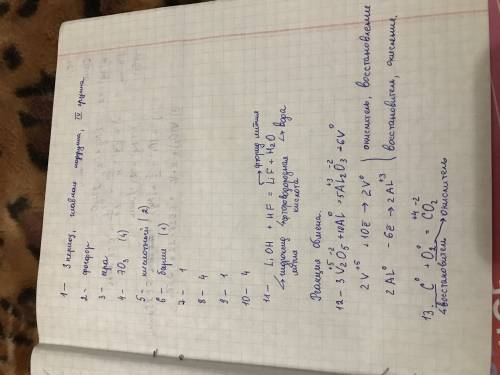 1 — 3 период, главная подгруппа, IV группа
2 — фосфор
3 — сера
4 — ЭO3 (4)
5 — кислотный (2)
6 — барий (1)
7 — 1
8 — 4
9 — 1
10 — 4
11 — LiOH + HF = LiF + H2O
гидроксид лития
фтороводородная кислота
фторид лития
вода
Реакция обмена.
12 — 3V2O5 + 10Al → 5Al2O3 + 6V
+5 -2 0 +3 -2 0
2V+5 +10e̅ → 2V0 окислитель, восстановление
2Al0 - 6e̅ → 2Al+3 восстановитель, окисление
13. C0 + O20 = CO2
+4 -2
восстановитель окислитель